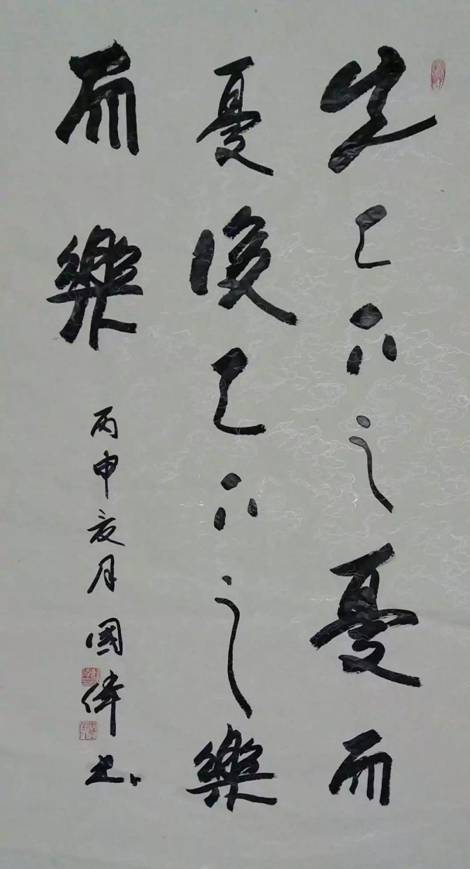 先天下之憂而
憂後天下之樂
而樂
丙申亥月國偉书